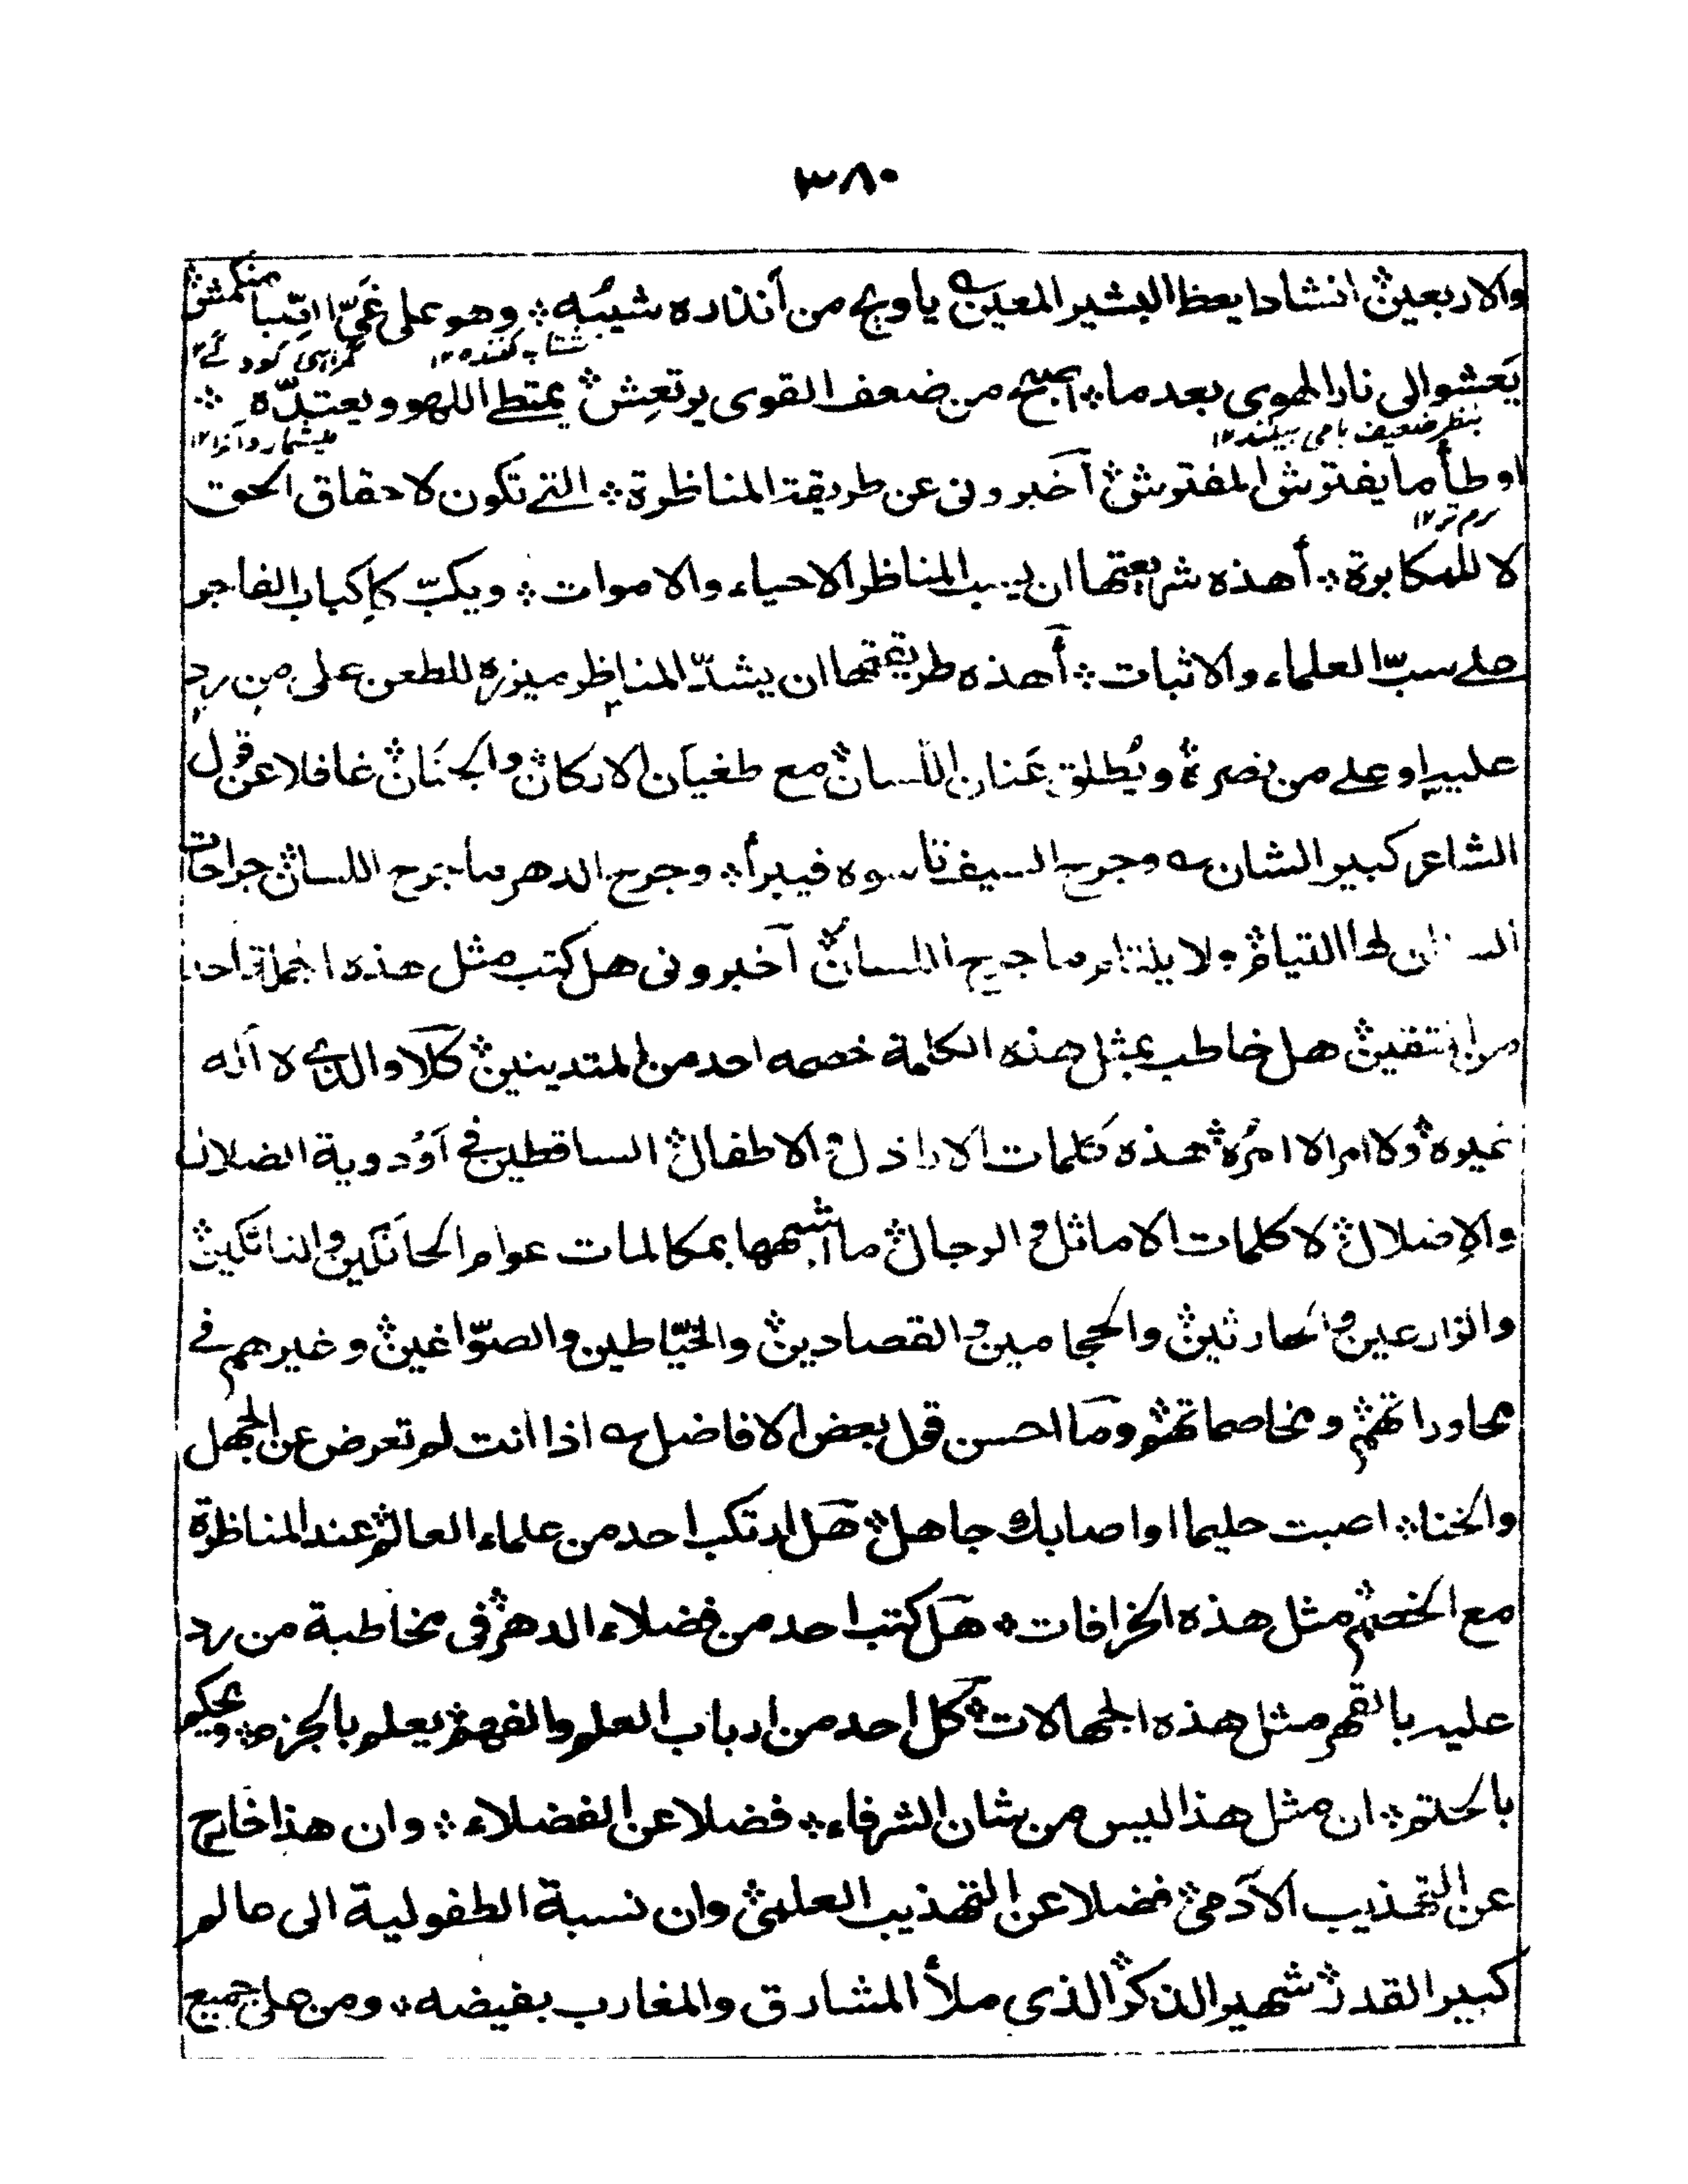 ٣٨٠
والاربعين انشادا يعظ البشير المعين يا ويح من أنذره شيبه ؞ وهو على غيّ الصبا منكمش
شتاب كننده ١٢ گمراہی کودکے ١٢
يعشو الى نار الهوى بعد ما ؞ اصبح من ضعف القوى يرتعش ؞ يمتطى اللهو ويعتدّه ؞
بنظر ضعيف ١٢ ميشمارد آنرا ١٢
اوطأ ما يفترش المفترش ؞ آخبرونى عن طريقة المناظرة ؞ التى تكون لاحقاق الحق
نرم تر ١٢
لا للمكابرة ؞ أهذه شريعتها ان يسب المناظر الاحياء والاموات ؞ ويكبّ كإكباب الفاجر
على سبّ العلماء والاثبات ؞ أهذه طريقتها ان يشدّ المناظر ميزره للطعن على من رد
عليه او على من نصره ؞ ويُطلق عَنان اللسان ؞ مع طغيان الاركان ؞ والجنَان ؞ غافلا عن قول
الشاعر كبير الشان وجرح السيف تأسوه فيبرأ ؞ وجرح الدهر ما جرح اللسان ؞ جراحات
لها التيام ؞ ولا يلتام ما جرح اللسان ؞ آخبرونى هل كتب مثل هذه الجملة احد
من المتقين ؞ هل خاطب بمثل هذه الكلمة خصمه احد من المتدينين ؞ كلا والذى لا اله
غيره ؞ ولا امر الا امره ؞ هذه كلمات الاراذل ؞ الاطفال ؞ الساقطين فى آوُدوية الضلال
والإضلال ؞ لا كلمات الاماثل ؞ والرجال ؞ ما أشبهها بمكالمات عوام الحائكين ؞ والنائكين ؞
والزارعين ؞ والحارثين ؞ والحجامين ؞ والقصارين ؞ والخيّاطين والصوّاغين ؞ وغيرهم فى
محاوراتهم ؞ ومخاصماتهم ؞ ومَا احسن قول بعض الافاضل اذا انت لم تعرض عن الجهل
والخنا ؞ اصبت حليما او اصابك جاهل ؞ هَل ارتكب احد من علماء العالم ؞ عند المناظرة
مع الخصم ؞ مثل هذه الخرافات ؞ هَل كتب احد من فضلاء الدهر ؞ فى مخاطبة من رد
عليه بالقهر مثل هذه الجهالات ؞ كل احد من ارباب العلم والفهم ؞ يعلم بالجزم ؞ ويحكم
بالحتم ؞ ان مثل هذا ليس من شان الشرفاء ؞ فضلا عن الفضلاء ؞ وان هذا خارج
عن التهذيب الآدمى ؞ فضلا عن التهذيب العلمى ؞ وان نسبة الطفولية الى عالم
كبير القدر ؞ شهير الذكر ؞ الذى ملأ المشارق والمغارب بفيضه ؞ ومن على جميع